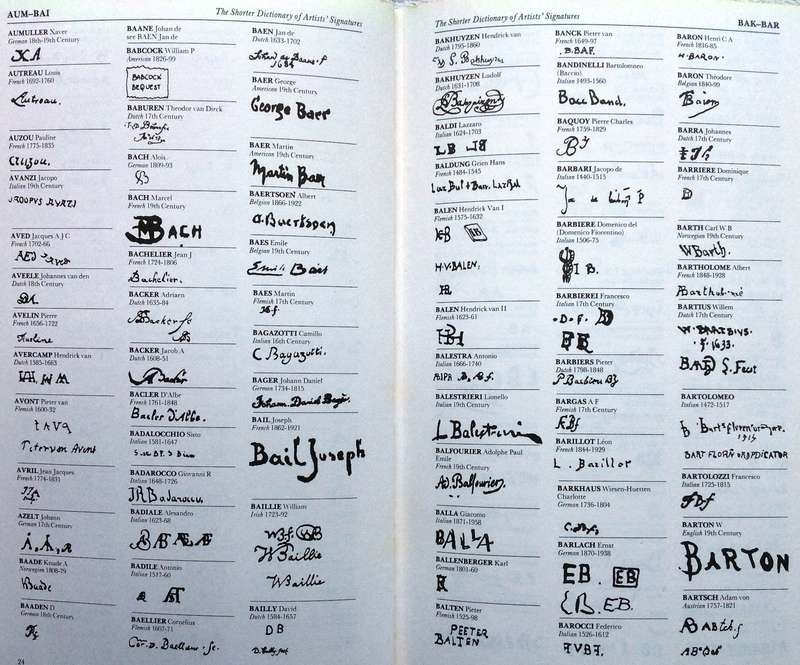 AUM–BAI
The Shorter Dictionary of Artists' Signatures
AUMULLER Xaver
German 18th-19th Century
XA
AUTREAU Louis
French 1692-1760
Autreau.
AUZOU Pauline
French 1775-1835
Auzou.
AVANZI Jacopo
Italian 19th Century
AVED Jacques A J C
French 1702-66
AED
AVEELE Johannes van den
Dutch 18th Century
AVELIN Pierre
French 1656-1722
AVERCAMP Hendrick van
Dutch 1585-1663
AVONT Pieter van
Flemish 1600-32
Peter van Avont
AVRIL Jean Jacques
French 1774-1831
AZELT Johann
German 17th Century
BAADE Knude A
Norwegian 1808-79
Baade
BAADEN D
German 18th Century
24
BAANE Johan de
see BAEN Jan de
BABCOCK William P
American 1826-99
BABCOCK
BEQUEST
BABUREN Theodor van Dirck
Dutch 17th Century
BACH Alois
German 1809-93
B
BACH Marcel
French 19th Century
BACH
BACHELIER Jean J
French 1724-1806
Bachelier.
BACKER Adriaen
Dutch 1635-84
Backer fe
BACKER Jacob A
Dutch 1608-51
Backer
BACLER D'Albe
French 1761-1848
Bacler D'Albe.
BADALOCCHIO Sisto
Italian 1581-1647
BADAROCCO Giovanni R
Italian 1648-1726
JR Badaracco.
BADIALE Alesandro
Italian 1623-68
BADILE Antonio
Italian 1517-60
BAELLIER Cornelius
Flemish 1607-71
BAEN Jan de
Dutch 1633-1702
BAER George
American 19th Century
George Baer
BAER Martin
American 19th Century
Martin Baer
BAERTSOEN Albert
Belgian 1866-1922
A. Baertsoen
BAES Emile
Belgian 19th Century
Emile Baes
BAES Martin
Flemish 17th Century
BAGAZOTTI Camillo
Italian 16th Century
C Bagazotti.
BAGER Johann Daniel
German 1734-1815
Johann David Bager.
BAIL Joseph
French 1862-1921
Bail Joseph
BAILLIE William
Irish 1723-92
WB f. WB
W Baillie
WBaillie
BAILLY David
Dutch 1584-1657
DB
The Shorter Dictionary of Artists' Signatures
BAK–BAR
BAKHUYZEN Hendrick van
Dutch 1795-1860
BAKHUYZEN Ludolf
Dutch 1631-1708
BALDI Lazzaro
Italian 1624-1703
LB
BALDUNG Grien Hans
French 1484-1545
BALEN Hendrick Van I
Flemish 1575-1632
H.V.BALEN.
BALEN Hendrick van II
Flemish 1623-61
BALESTRA Antonio
Italian 1666-1740
BALESTRIERI Lionello
Italian 19th Century
L Balestrieri
BALFOURIER Adolphe Paul
Emile
French 19th Century
Ad. Balfourier.
BALLA Giacomo
Italian 1871-1958
BALLA
BALLENBERGER Karl
German 1801-60
BALTEN Pieter
Flemish 1525-98
PEETER
BALTEN
BANCK Pieter van
French 1649-97
BANDINELLI Bartolomneo
(Baccio)
Italian 1493-1560
Bacc Band.
BAQUOY Pierre Charles
French 1759-1829
BARBARI Jacopo de
Italian 1440-1515
BARBIERE Domenico del
(Domenico Fiorentino)
Italian 1506-75
B.
BARBIEREI Francesco
Italian 17th Century
BARBIERS Pieter
Dutch 1798-1848
P Barbiers
BARGAS A F
Flemish 17th Century
BARILLOT Léon
French 1844-1929
L. Barillot
BARKHAUS Wiesen-Huesten
Charlotte
German 1736-1804
BARLACH Ernst
German 1870-1938
EB. EB
EB.
BAROCCI Federico
Italian 1526-1612
BARON Henri C A
French 1816-85
H. BARON.
BARON Théodore
Belgian 1840-99
Baron
BARRA Johannes
Dutch 17th Century
BARRIERE Dominique
French 17th Century
BARTH Carl W B
Norwegian 19th Century
W Barth.
BARTHOLOME Albert
French 1848-1928
Bartholomé
BARTIUS Willem
Dutch 17th Century
BARTOLOMEO
Italian 1472-1517
BARTOLOZZI Francesco
Italian 1725-1815
BARTON W
English 19th Century
BARTON
BARTSCH Adam von
Austrian 1757-1821